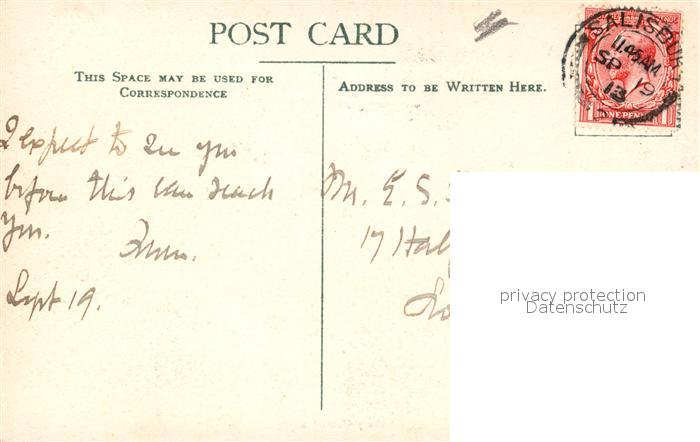 POST CARD
THIS SPACE MAY BE USED FOR
CORRESPONDENCE
ADDRESS TO BE WRITTEN HERE.
SALISBU
11 45 AM
SP 19
13
ONE PENNY
I expect to see you
before this can reach
you.
Sept 19.
E. S.
17 Half
Lo
privacy protection
Datenschutz